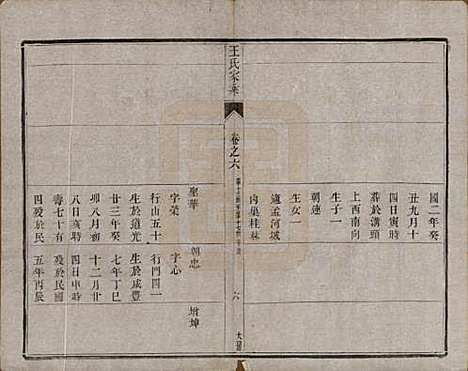 國二年癸
丑九月十
四日寅時
葬於溝頭
上酉南向
生子一
朝連
生女一
適孟河城
內巢桂林
王氏家乘
卷之六
六
大
聖華
字榮
行山五十
生於道光
廿三年癸
卯八月初
八日亥時
壽七十有
四歿於民
朝忠
字心
行門四一
生於咸豐
七年丁巳
十二月廿
四日申時
歿於民國
五年丙辰
增坤